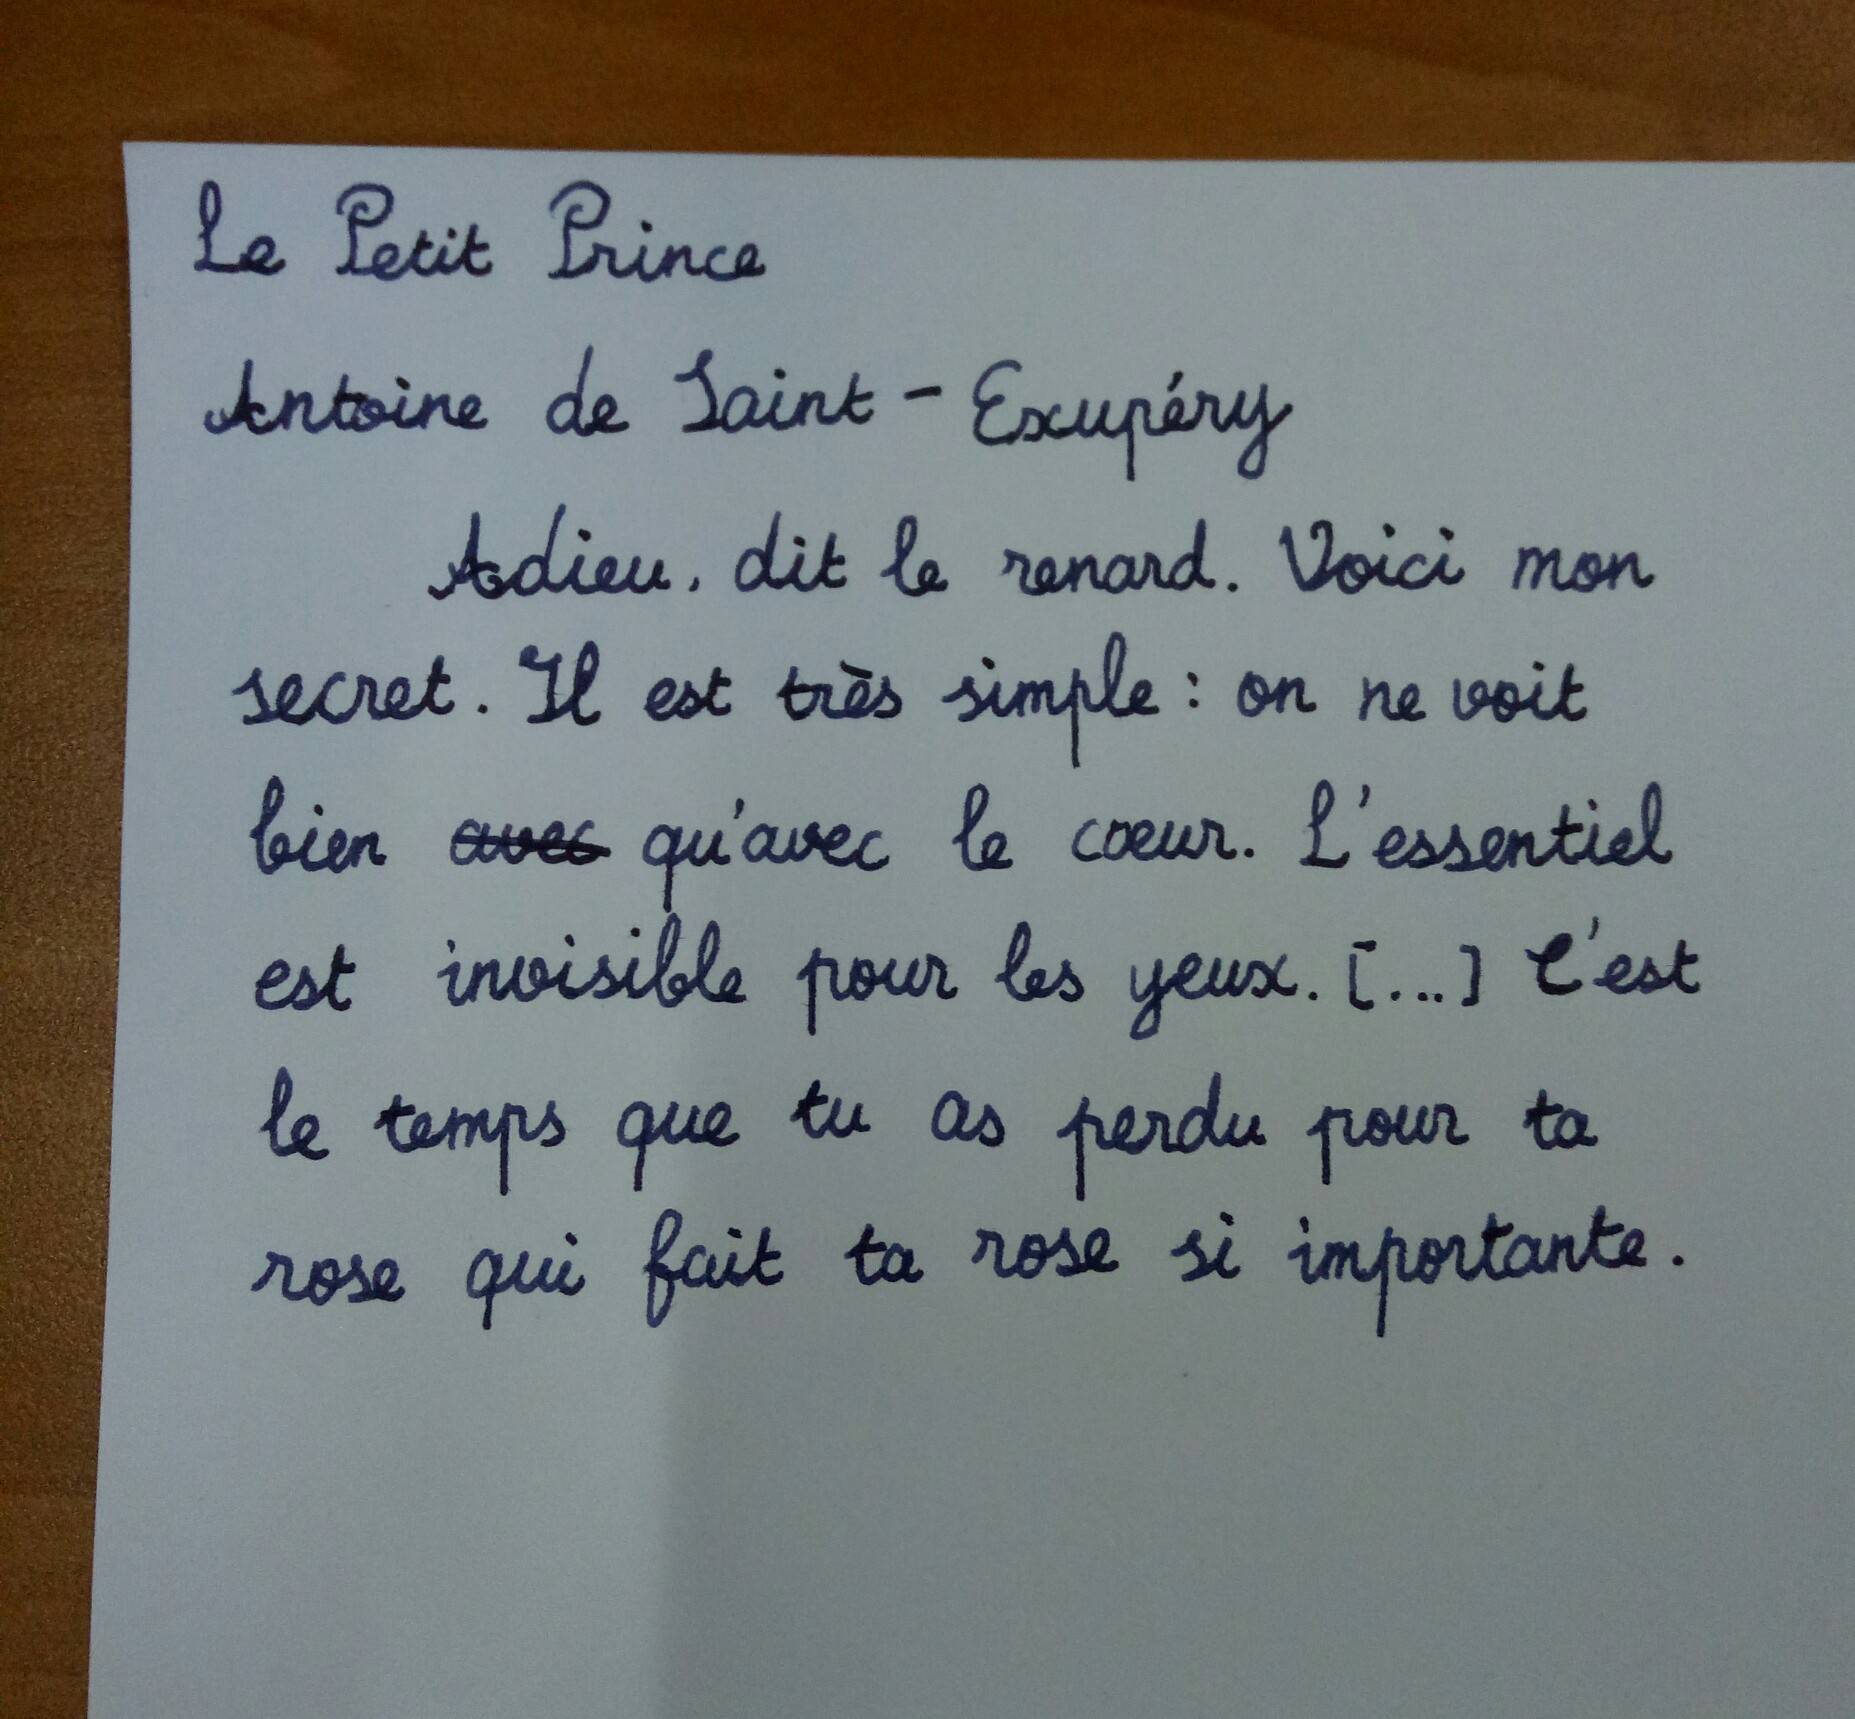 Le Petit Prince
Antoine de Saint-Exupéry
Adieu, dit le renard. Voici mon
secret. Il est très simple : on ne voit
bien avec qu'avec le cœur. L'essentiel
est invisible pour les yeux. [...] C'est
le temps que tu as perdu pour ta
rose qui fait ta rose si importante.